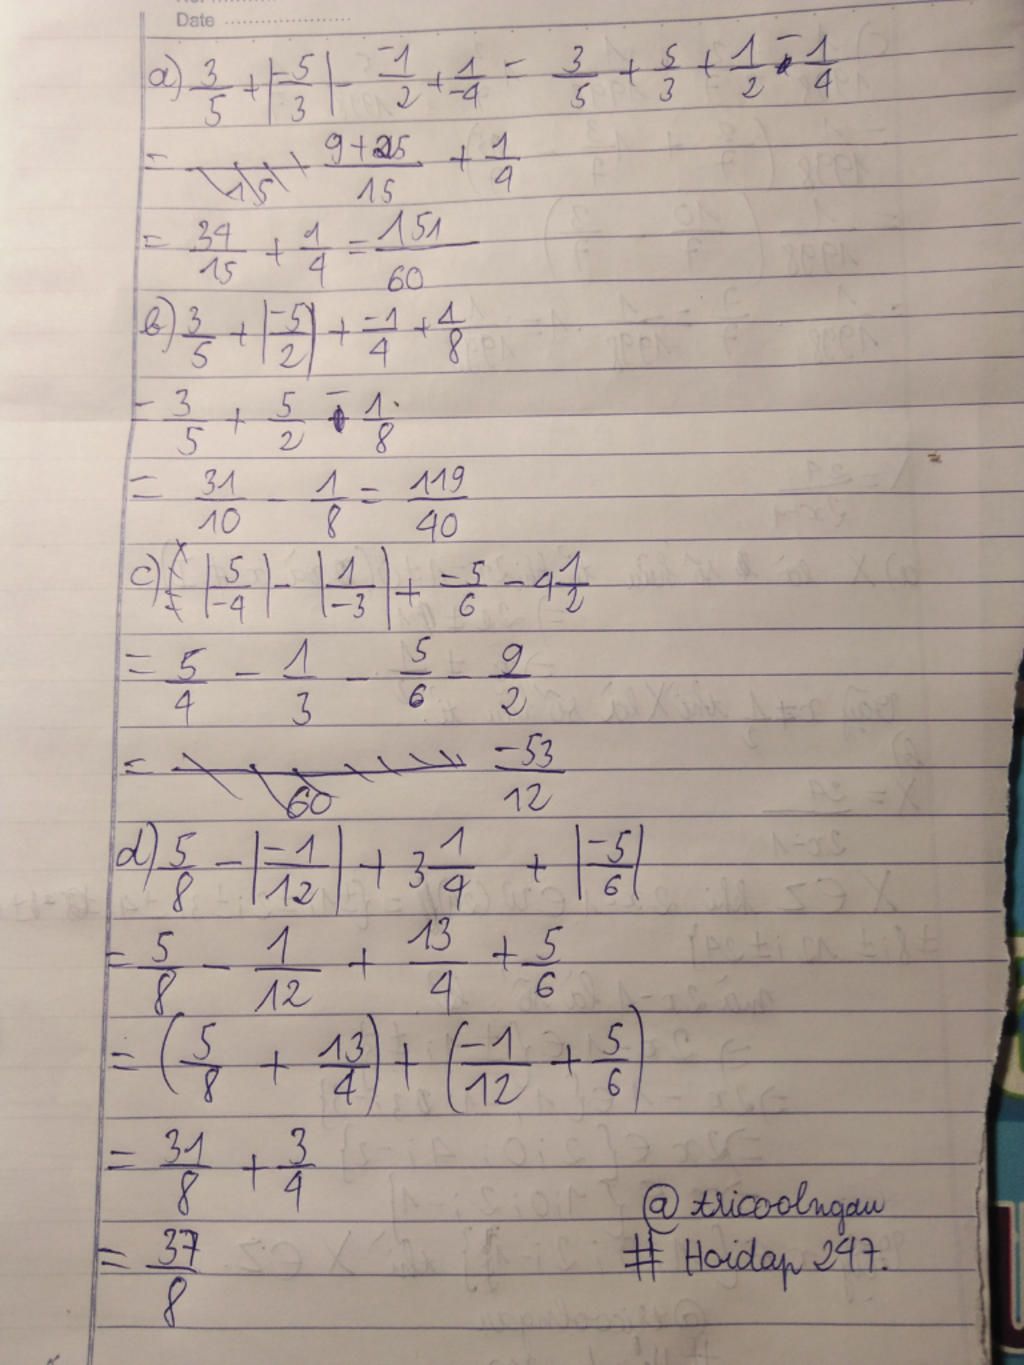 Date
a) 3/5 + |-5/3| - -1/2 + 1/-4 = 3/5 + 5/3 + 1/2 - 1/4
= 9+25/15 + 1/4
= 34/15 + 1/4 = 151/60
b) 3/5 + |-5/2| + -1/4 + 1/8
= 3/5 + 5/2 - 1/8
= 31/10 - 1/8 = 119/40
c) |5/-4| - |1/-3| + -5/6 - 4 1/2
= 5/4 - 1/3 - 5/6 - 9/2
= -53/12
d) 5/8 - |-1/12| + 3 1/4 + |-5/6|
= 5/8 - 1/12 + 13/4 + 5/6
= (5/8 + 13/4) + (-1/12 + 5/6)
= 31/8 + 3/4
= 37/8
@tricoolngau
# Hoidap 247.